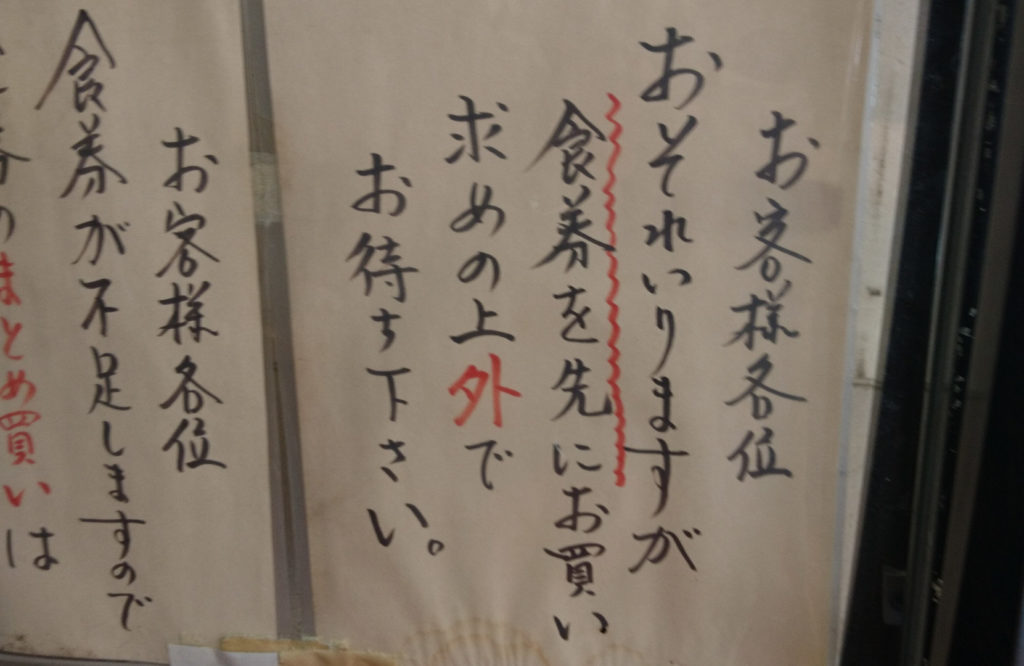 お客様各位
おそれいりますが
食券を先にお買い
求めの上外で
お待ち下さい。
お客様各位
食券が不足しますので
券のまとめ買いは